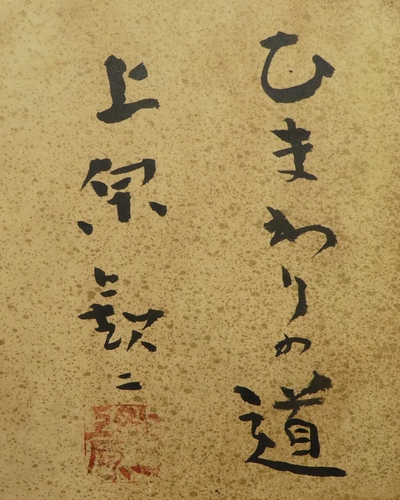 ひまわりの道
上原欽二